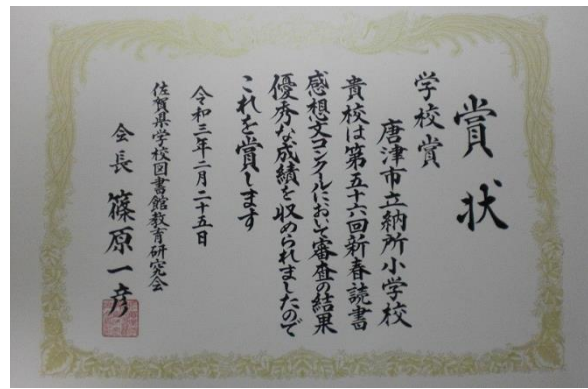 賞状
学校賞
唐津市立納所小学校
貴校は第五十六回新春読書
感想文コンクールにおいて審査の結果
優秀な成績を収められましたので
これを賞します
令和三年二月二十五日
佐賀県学校図書館教育研究会
会長 篠原一彦